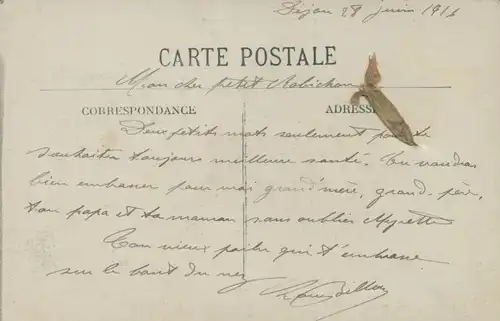 Dijon 28 juin 1916
CARTE POSTALE
Mon cher petit Robichon
CORRESPONDANCE
ADRESSE
Deux petits mots seulement pour te
souhaiter toujours meilleure santé. Tu voudras
bien embrasser pour moi grand'mère, grand-père,
ton papa et ta maman sans oublier
Ton vieux qui t'embrasse
sur le bout du nez